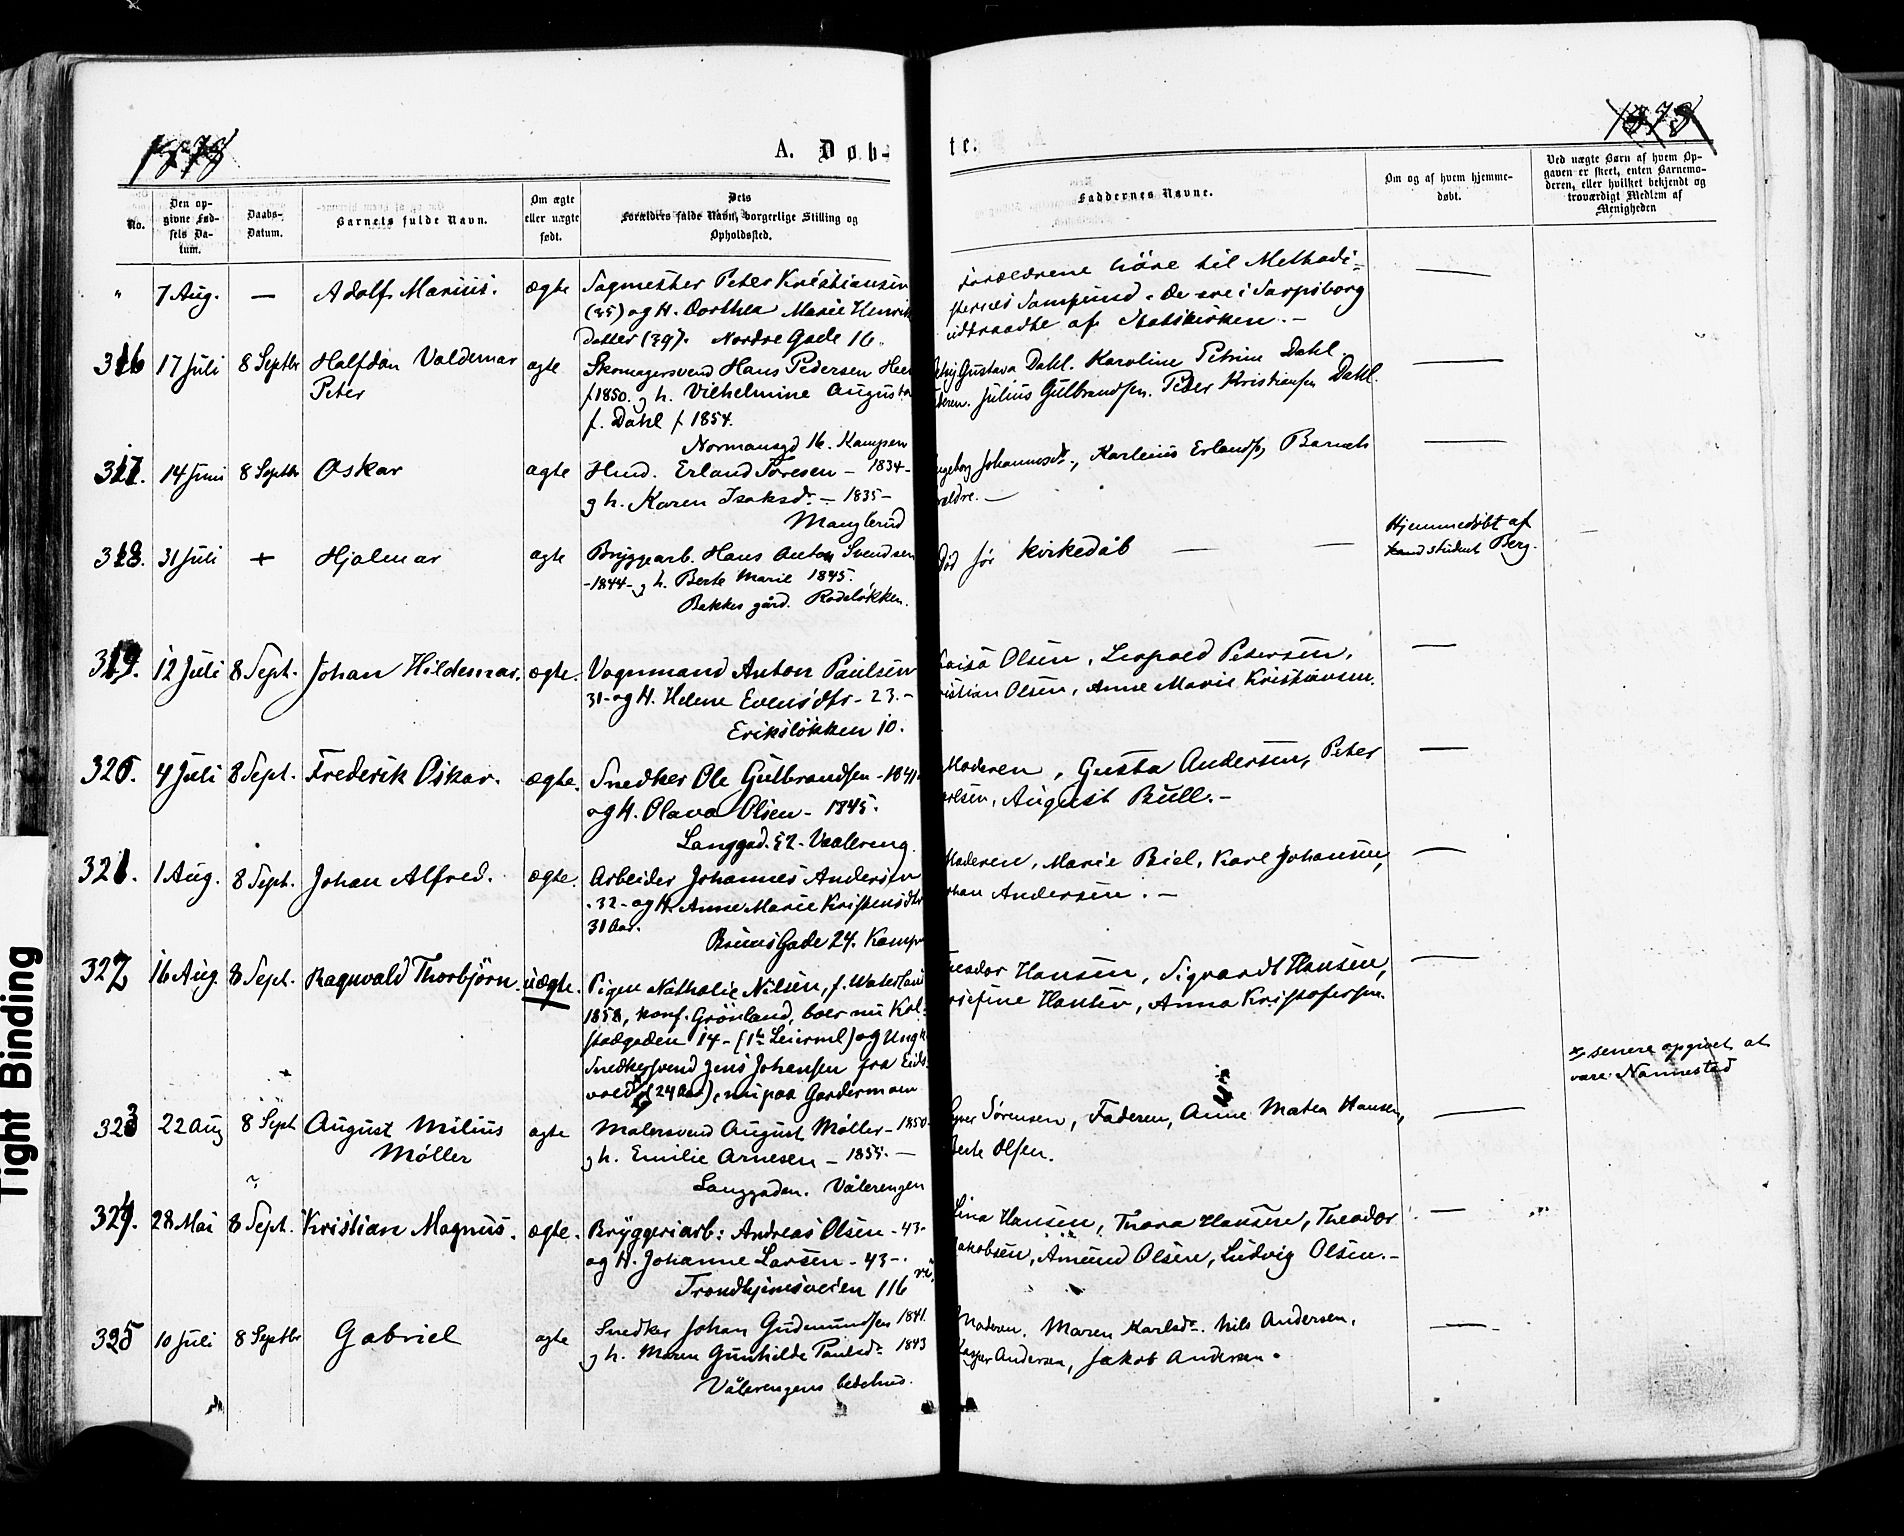 1878
A. Døb-
No.
Den op-
givne Fød-
sels Da-
tum.
Daabs-
Datum.
Barnets fulde Navn.
Om ægte
eller uægte
født.
Dets
Forældres fulde Navn, borgerlige Stilling og
Opholdssted.
" 7 Aug. — Adolf Marius. ægte Sagmester Peter Kristiansen
(35) og H. Dorthea Marie Henrik
Datter (39). Nordre Gade 16.
316 17 Juli 8 Septbr Halfdan Valdemar ægte Skomagersvend Hans Pedersen
Peter f 1850. g h. Vilhelmine Augusta
f. Dahl f 1854.
Normansgd 16. Kampen
317. 14 Juni 8 Septbr Oskar ægte Hmd. Erland Toresen - 1834-
g h. Karen Isaksdr - 1835 -
Manglerud
318. 31 Juli + Hjalmar ægte Bryggearb. Hans Anton Svendsen
-1844- g h. Berte Marie 1845.
Bakkes gård. Rodeløkken.
319. 12 Juli 8 Sept. Johan Hildemar. ægte. Vognmand Anton Paulsen
31- og H. Helene Evensdtr - 23.-
Eriksløkken 10.
320. 4 Juli 8 Sept. Frederik Oskar. ægte. Snedker Ole Gulbrandsen - 1841-
og H. Olava Olsen - 1845.
Langgad. 52 - Vaalereng.
321. 1 Aug. 8 Sept. Johan Alfred. ægte. Arbeider Johannes Andersen
- 32 - og H. Anne Marie Kristensdtr
31 Aar.
Bruns Gade 24. Kampe
322 16 Aug. 8 Sept. Ragnvald Thorbjörn. uægte. Pigen Nathalie Nilsen, f. Waterland
1858, konf. Grönland, boer nu Kol-
stadgaden 14 - (1ste Leierml) og Ungk.
Snedkersvend Jens Johansen fra Eids-
vold (24 Aar), nu paa Gardermoen
323 22 Aug 8 Sept August Milius ægte Malersvend August Møller - 1850-
Møller g h. Emilie Arnesen - 1855. -
Langgaden. Vålerengen
324. 28 Mai 8 Sept. Kristian Magnus. ægte. Bryggeriarb: Andreas Olsen - 43-
og H. Johanne Larsen - 43 -.
Trondhjemsveien 116
325 10 Juli 8 Septbr Gabriel ægte Snedker Johan Gudmundsen 1841.
g h. Maren Gunhilde Paulsdr 1843
Vålerengens bedehus.
te.
Faddernes Navne.
Om og af hvem hjemme-
døbt.
Ved uægte Børn af hvem Op-
gaven er skeet, enten Barnemo-
deren, eller hvilket bekjendt og
troværdigt Medlem af
Menigheden
Forældrene höre til Methodi- —
sternes Samfund. De ere i Sarpsborg
udtraadte af Statskirken. -
Gustava Dahl. Karoline Petrine Dahl. —
Julius Gulbrandsen. Peder Kristiansen Dahl.
Ingeborg Johannesdr, Karlenius Erlands, Barnets —
Forældre. -
Død før kirkedåb — — Hjemmedøbt af
student Berg.
Olsen, Leopold Petersen, —
Kristian Olsen, Anne Marie Kristiansen.
Moderen, Gusta Andersen, Peter —
Karlsen, August Bull. -
Moderen, Marie Biel, Karl Johansen, —
Johan Andersen. -
Theodor Hansen, Sigvardt Hansen, —
Josefine Hansen, Anna Kristofersen.
senere opgivet at
være: Nannestad
Sørensen, Faderen, Anne Matea Hansen, —
Berte Olsen.
Lina Hansen, Thora Hansen, Theodor —
Jakobsen, Amund Olsen, Ludvig Olsen. -
Moderen. Maren Karlsdr. Nils Andersen, —
Andersen, Jakob Andersen.
Tight Binding